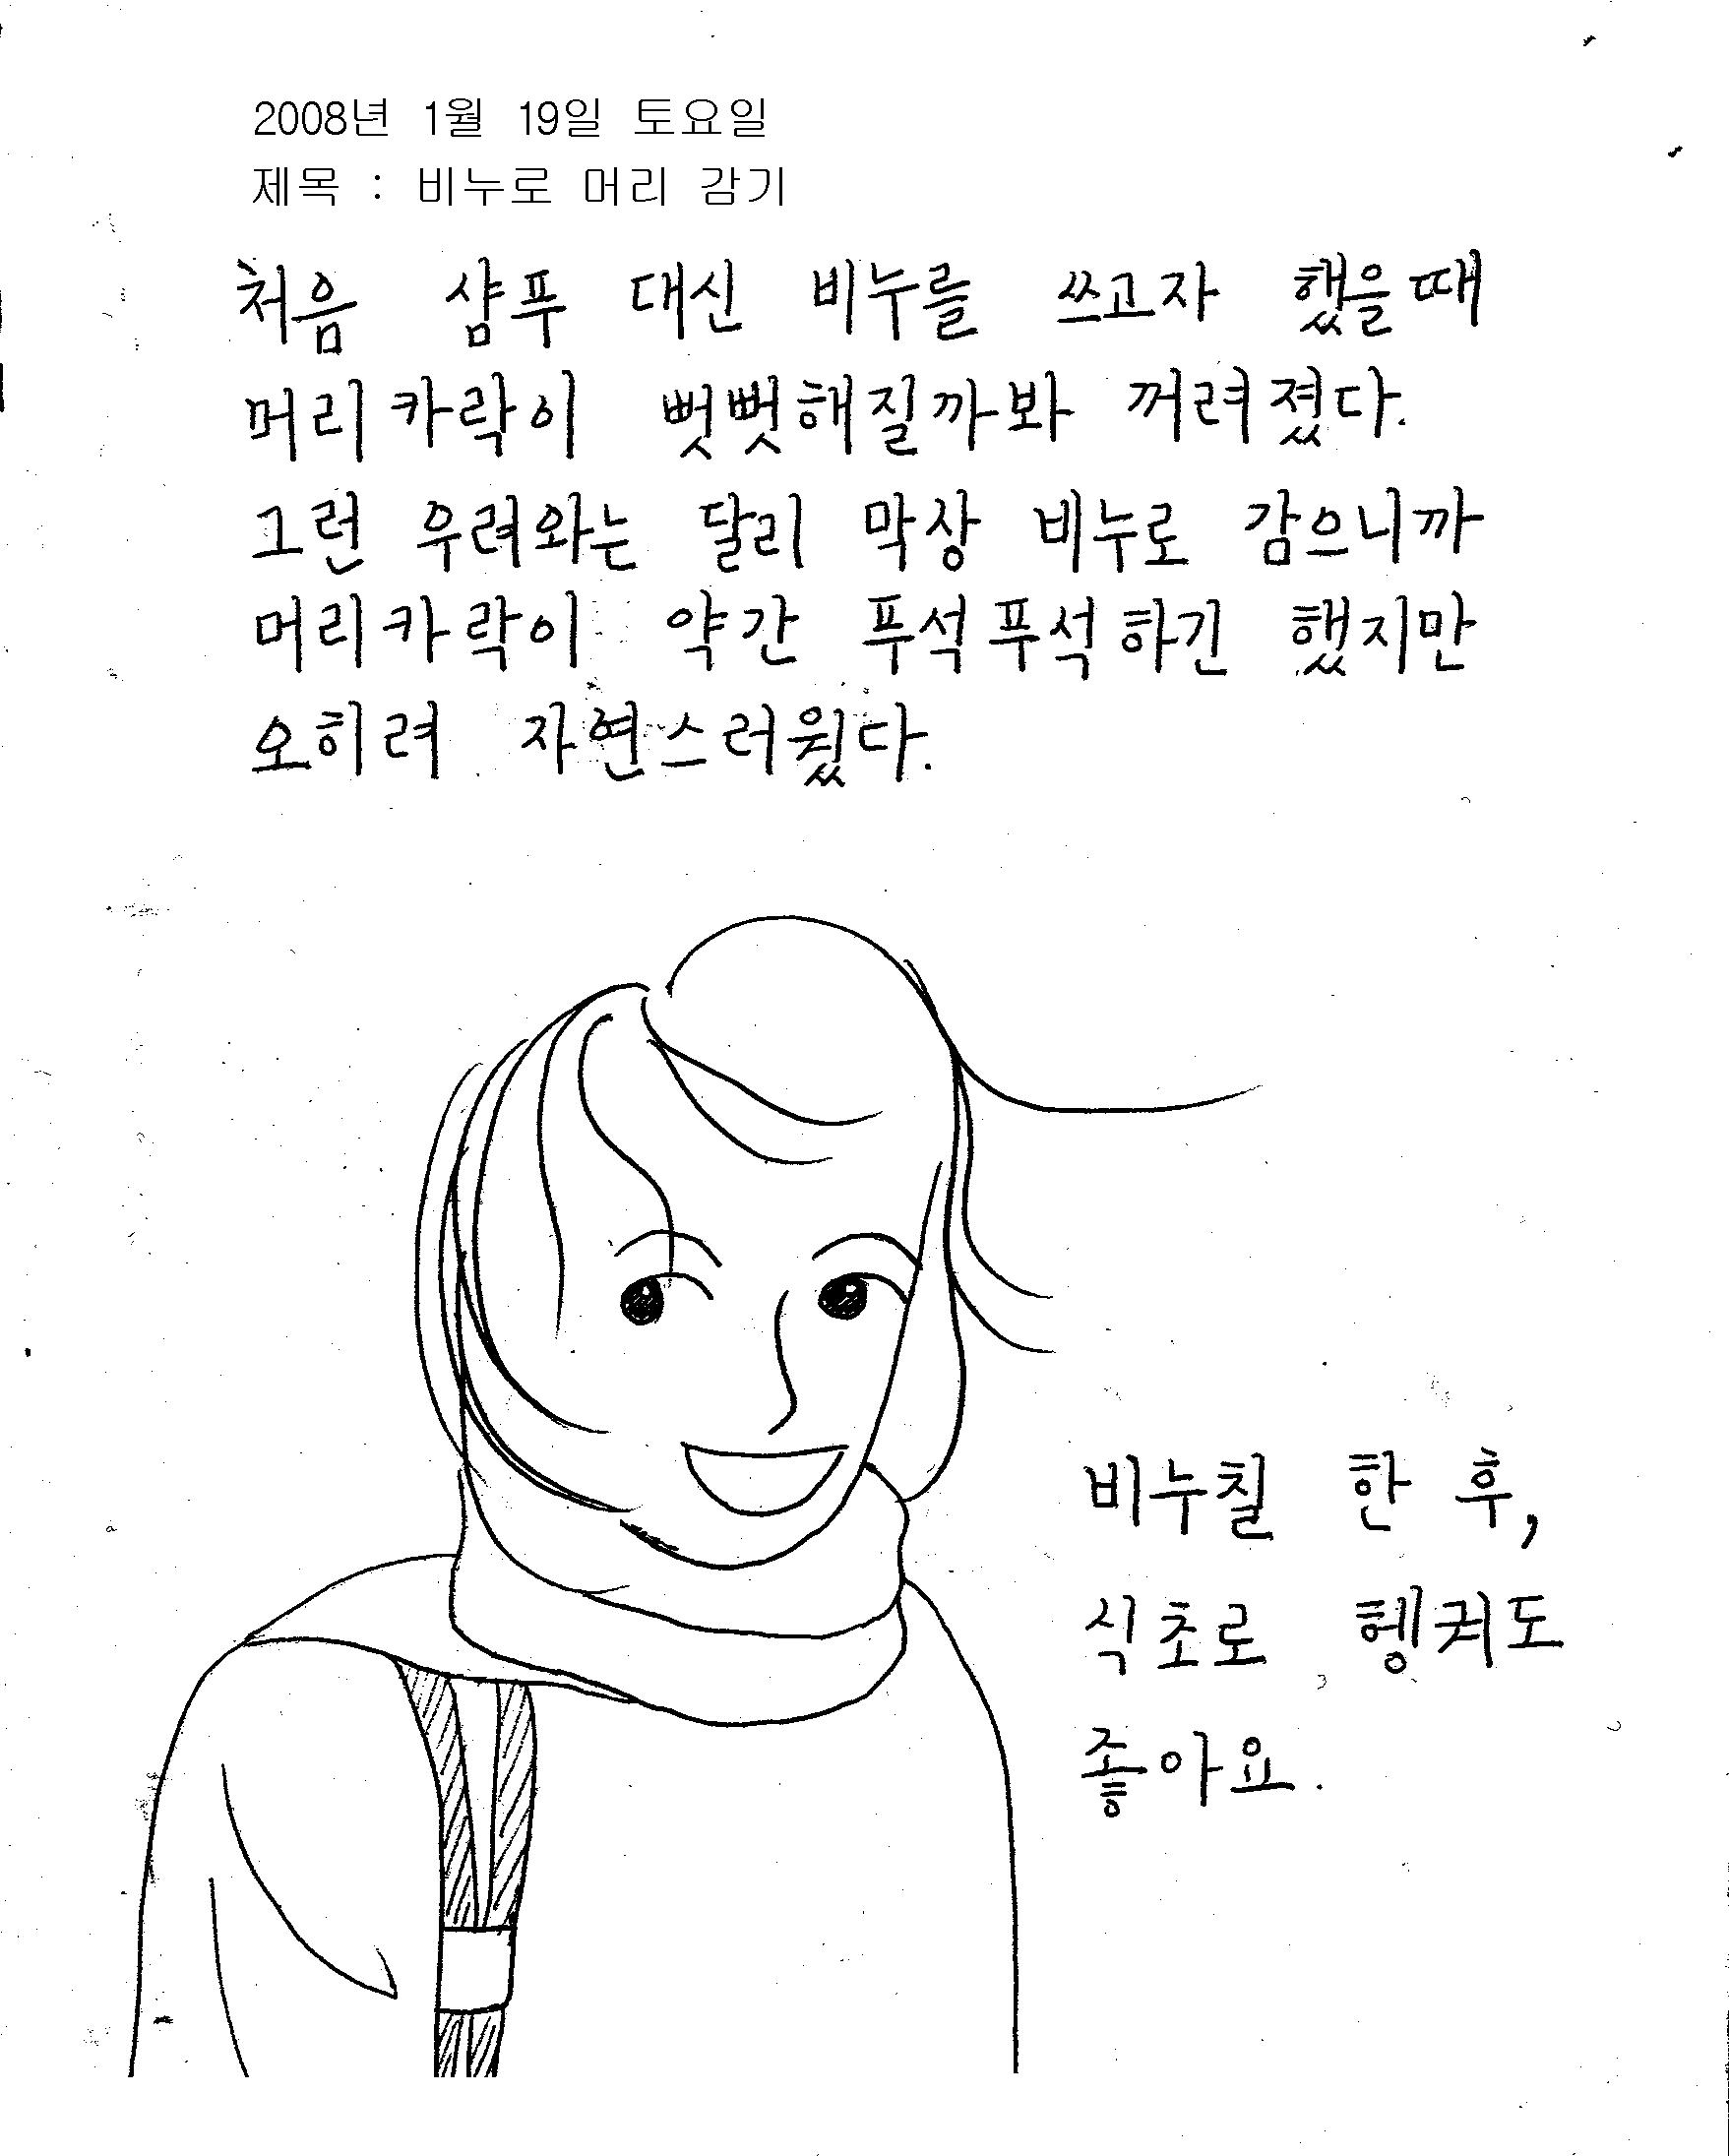 2008년 1월 19일 토요일
제목 : 비누로 머리 감기
처음 샴푸 대신 비누를 쓰고자 했을때
머리카락이 뻣뻣해질까봐 꺼려졌다.
그런 우려와는 달리 막상 비누로 감으니까
머리카락이 약간 푸석푸석하긴 했지만
오히려 자연스러웠다.
비누칠 한 후,
식초로 헹궈도
좋아요.